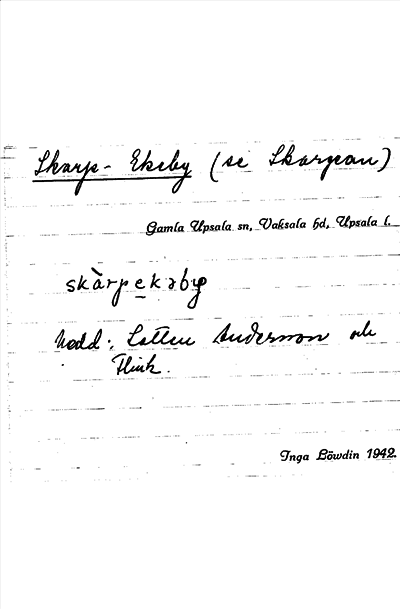 Skarp-Ekeby (se Skarpan)
Gamla Upsala sn, Vaksala hd, Upsala l.
skàrpekəby
Medd: Lotten Andersson och
Flink.
Inga Löwdin 1942.